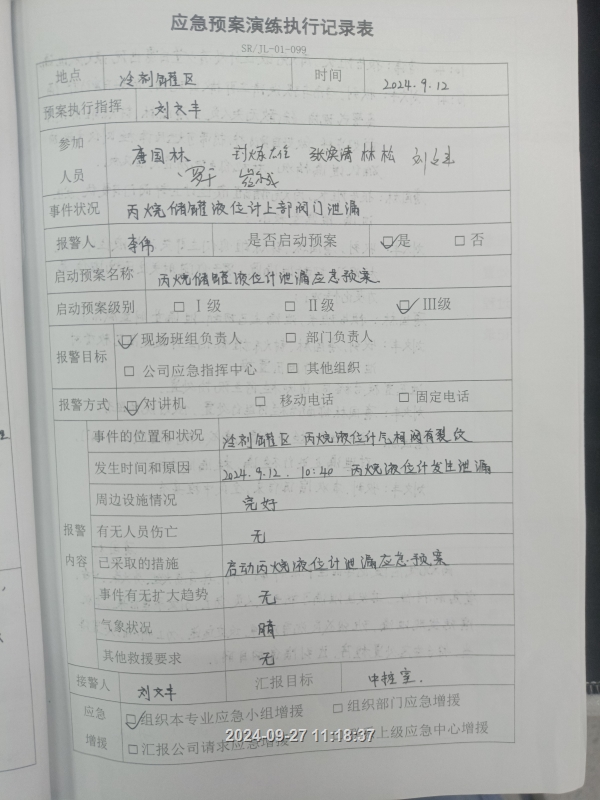 应急预案演练执行记录表
SR/JL-01-099
地点 冷剂罐区 时间 2024.9.12
预案执行指挥 刘文丰
参加人员 唐国林 张淏清 林松
罗干
事件状况 丙烷储罐液位计上部阀门泄漏
报警人 李伟 是否启动预案 ☑是 □否
启动预案名称 丙烷储罐液位计泄漏应急预案
启动预案级别 □Ⅰ级 □Ⅱ级 ☑Ⅲ级
报警目标 ☑现场班组负责人 □部门负责人
□公司应急指挥中心 □其他组织
报警方式 ☑对讲机 □移动电话 □固定电话
报警内容
事件的位置和状况 冷剂罐区 丙烷液位计气相阀有裂纹
发生时间和原因 2024.9.12. 10:40 丙烷液位计发生泄漏
周边设施情况 完好
有无人员伤亡 无
已采取的措施 启动丙烷液位计泄漏应急预案
事件有无扩大趋势 无
气象状况 晴
其他救援要求 无
接警人 刘文丰 汇报目标 中控室.
应急增援 ☑组织本专业应急小组增援 □组织部门应急增援
□汇报公司请求应急增援 上级应急中心增援
2024-09-27 11:18:37